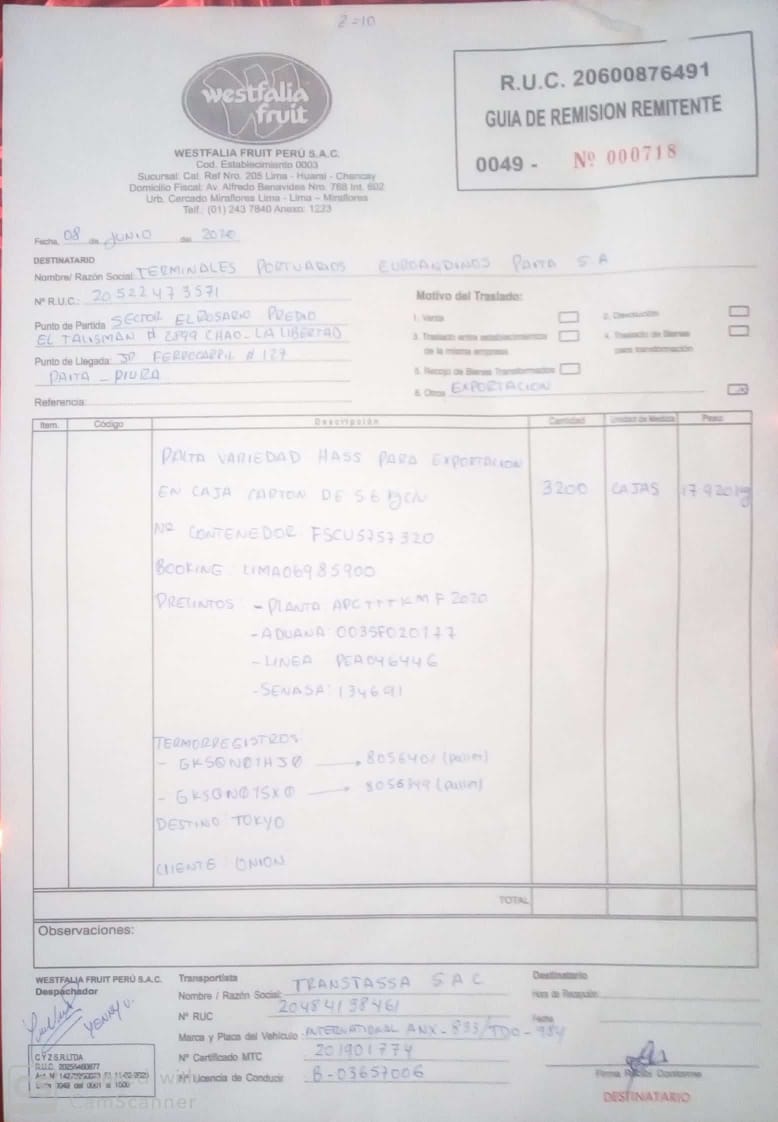 2=10
westfalia
fruit
WESTFALIA FRUIT PERÚ S.A.C.
Cod. Establecimiento 0003
Sucursal: Cal. Ref Nro. 205 Lima - Huaral - Chancay
Domicilio Fiscal: Av. Alfredo Benavides Nro. 768 Int. 602
Urb. Cercado Miraflores Lima - Lima – Miraflores
Telf.: (01) 243 7840 Anexo: 1223
R.U.C. 20600876491
GUIA DE REMISION REMITENTE
0049 - Nº 000718
Fecha, 08 de JUNIO del 2020
DESTINATARIO
Nombre/ Razón Social: TERMINALES PORTUARIOS EUROANDINOS PAITA S A
Nº R.U.C.: 20522473571
Motivo del Traslado:
Punto de Partida SECTOR EL ROSARIO PREDIO
EL TALISMAN # 2899 CHAO - LA LIBERTAD
Punto de Llegada: JR FERROCARRIL # 127
PAITA - PIURA
Referencia:
1. Venta
2. Devolución
3. Traslado entre establecimientos
de la misma empresa
4. Traslado de Bienes
para transformación
5. Recojo de Bienes Transformados
6. Otros EXPORTACION
Item. Código Descripción Cantidad Unidad de Medida Peso
PALTA VARIEDAD HASS PARA EXPORTACION
EN CAJA CARTON DE 5.6 kg c/u 3200 CAJAS 17920 kg
Nº CONTENEDOR: FSCU5757320
BOOKING: LIMA06985900
PRECINTOS: - PLANTA APCTTTKMF2020
- ADUANA: 0035F020177
- LINEA PEA046446
- SENASA: 134691
TERMORREGISTROS:
- GKSQN01HJ0 → 8056401 (pallet)
- GKSQN01SX0 → 8056399 (pallet)
DESTINO: TOKYO
CLIENTE: UNION
TOTAL
Observaciones:
WESTFALIA FRUIT PERÚ S.A.C.
Despachador
YENNY V.
C Y Z S.R.LTDA
Transportista
Nombre / Razón Social: TRANSTASSA S A C
Nº RUC 20484138461
Marca y Placa del Vehículo: INTERNATIONAL ANX-833/TDO-984
Nº Certificado MTC 201901774
Nº Licencia de Conducir B-03657006
Destinatario
Hora de Recepción:
Fecha
Firma Recibi Conforme
DESTINATARIO
CamScanner